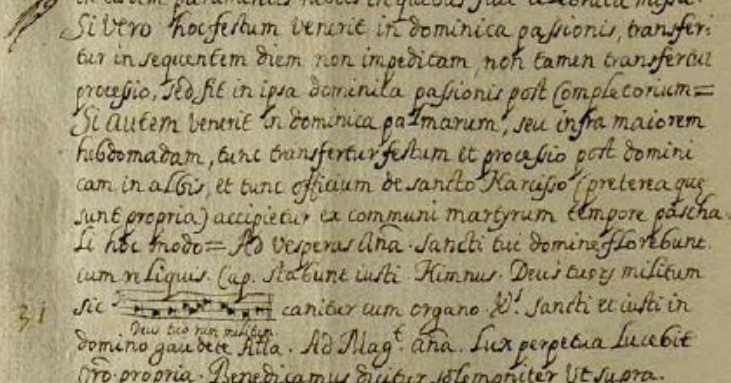 Si vero hoc festum venerit in dominica passionis, transfer=
tur in sequentem diem non impeditam, non tamen transfertur
processio, sed fit in ipsa dominica passionis post Completorium=
Si autem venerit in dominica palmarum, seu infra maiorem
hebdomadam, tunc transfertur festum et processio post domini
cam in albis, et tunc officium de sancto Narcisso (preterea que
sunt propria) accipietur ex communi martyrum tempore pascha
li hoc modo= Ad vesperas Aña. Sancti tui domine florebunt.
cum reliquis. Cap. stabunt iusti. Himnus. Deus tuorum militum
sic canitur cum organo. V. Sancti et iusti in
Deus tuo rum militum.
31
domino gaudete Alla. Ad Mag.t aña. Lux perpetua lucebit
Oro. propria. Benedicamus dicitur solemniter ut supra.